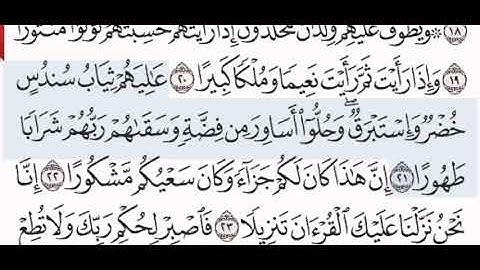 ۱۸ ۞ وَيَطُوفُ عَلَيْهِمْ وِلْدَٰنٌ مُّخَلَّدُونَ إِذَا رَأَيْتَهُمْ حَسِبْتَهُمْ لُؤْلُؤًا مَّنثُورًا
۱۹ وَإِذَا رَأَيْتَ ثَمَّ رَأَيْتَ نَعِيمًا وَمُلْكًا كَبِيرًا ۲۰ عَٰلِيَهُمْ ثِيَابُ سُندُسٍ
خُضْرٌ وَإِسْتَبْرَقٌ ۖ وَحُلُّوٓا۟ أَسَاوِرَ مِن فِضَّةٍ وَسَقَىٰهُمْ رَبُّهُمْ شَرَابًا
طَهُورًا ۲۱ إِنَّ هَٰذَا كَانَ لَكُمْ جَزَآءً وَكَانَ سَعْيُكُم مَّشْكُورًا ۲۲ إِنَّا
نَحْنُ نَزَّلْنَا عَلَيْكَ ٱلْقُرْءَانَ تَنزِيلًا ۲۳ فَٱصْبِرْ لِحُكْمِ رَبِّكَ وَلَا تُطِعْ